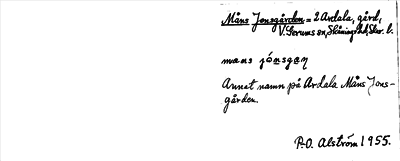 Måns Jonsgården = 2 Ardala, gård,
V. Gerums sn, Skånings hd, Skar. l.
mans jónsgaɳ
Annat namn på Ardala Måns Jons-
gården.
P-O. Alström 1955.